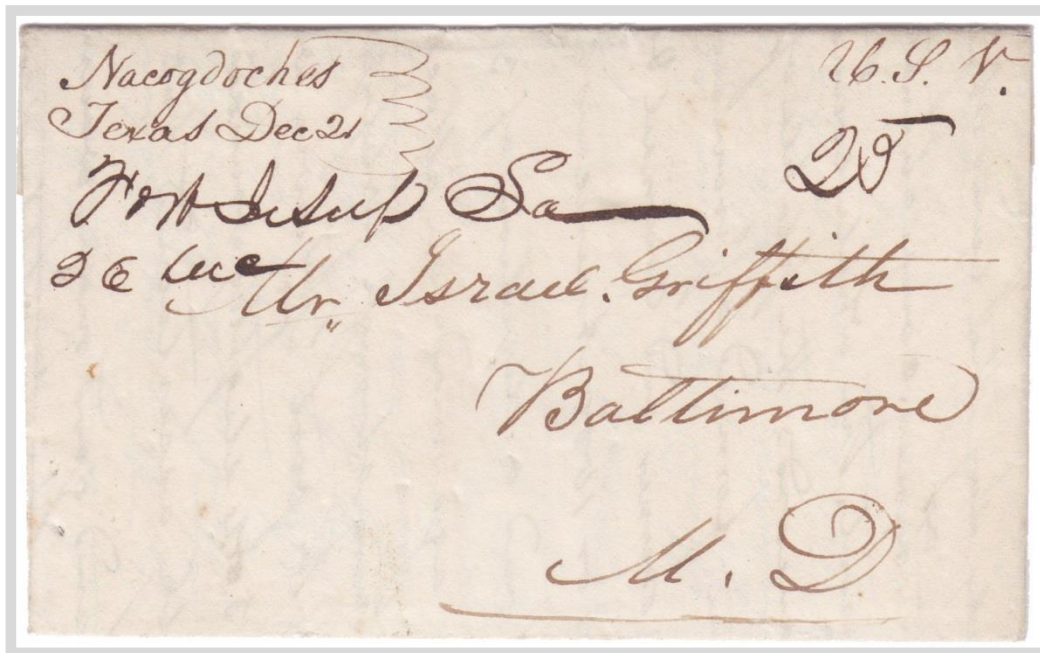 Nacogdoches
Texas Dec 21
U. S. V.
25
Fort Jesup La
26 Dec
Mr. Israel Griffith
Baltimore
M. D